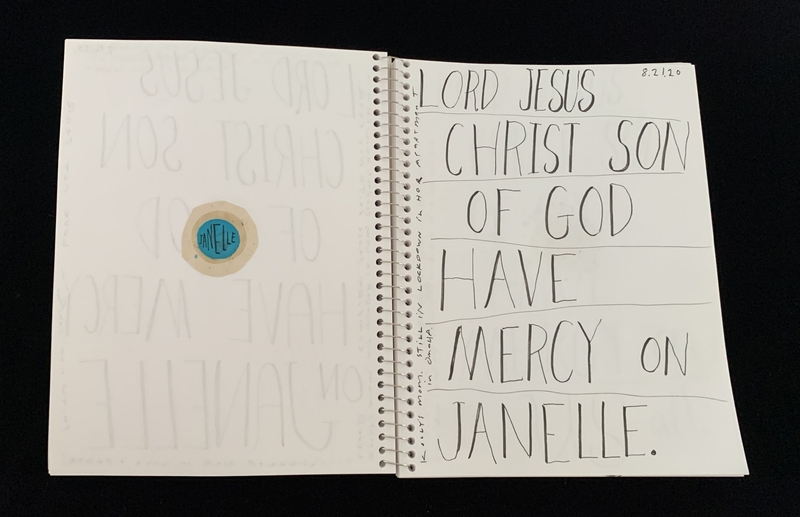 JANELLE
8.21.20
LORD JESUS
CHRIST SON
OF GOD
HAVE
MERCY ON
JANELLE.
KELLY'S MOM. STILL IN LOCKDOWN IN HER APARTMENT
in OMAHA!